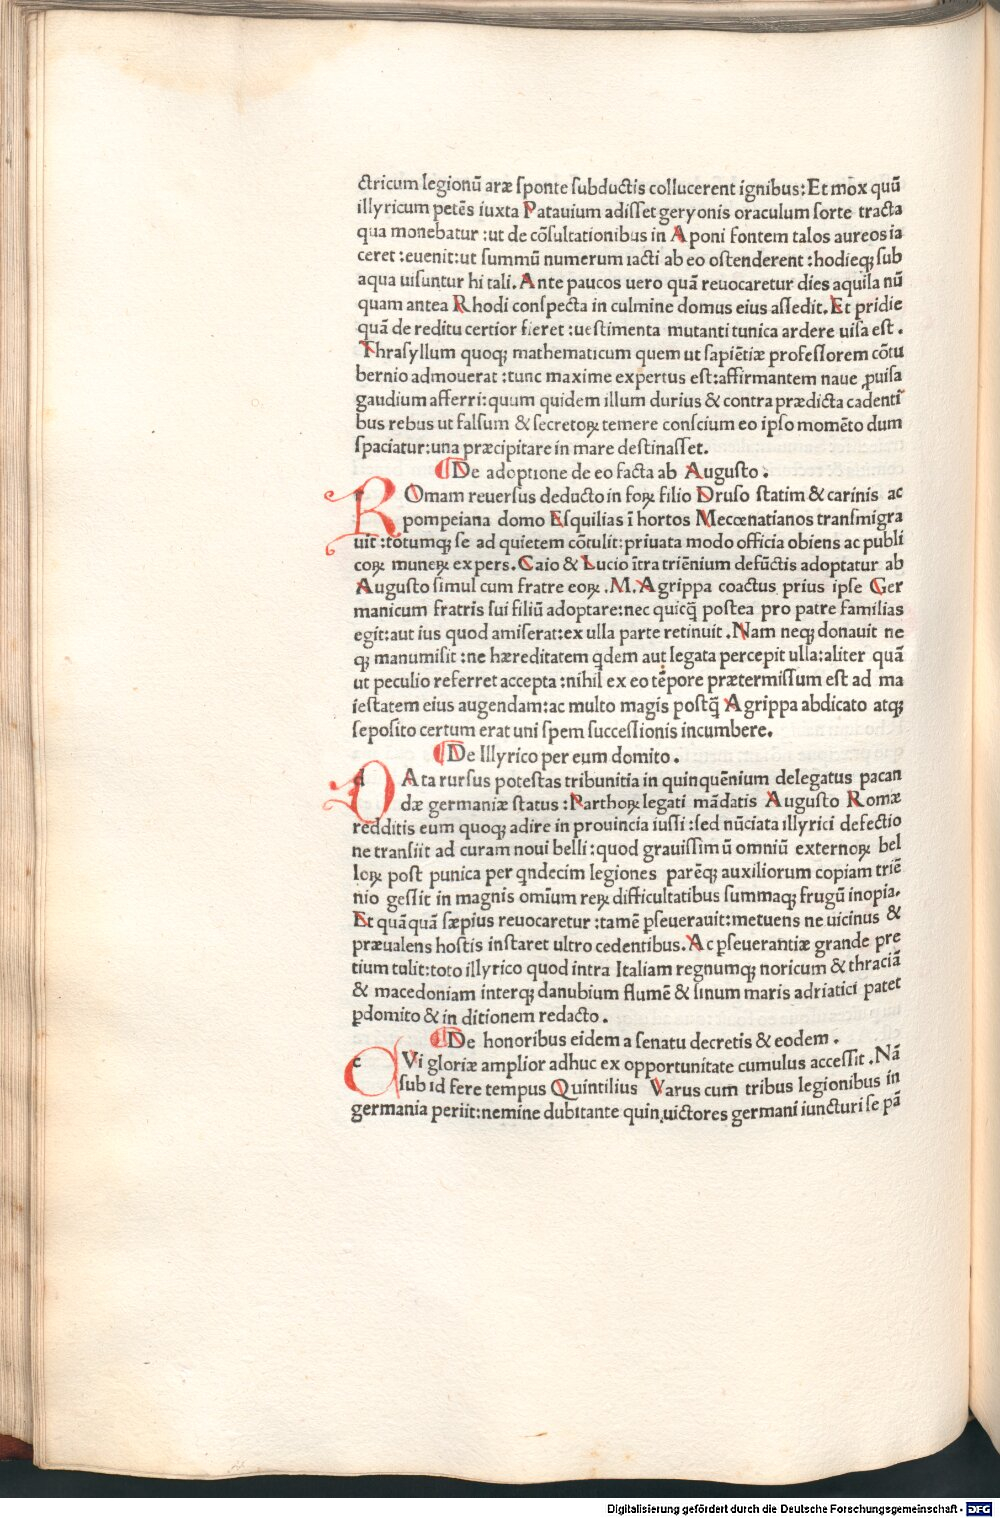 ctricum legionū aræ sponte subductis collucerent ignibus: Et mox quū
illyricum petēs iuxta Patauium adisset geryonis oraculum sorte tracta
qua monebatur :ut de cōsultationibus in Aponi fontem talos aureos ia
ceret :euenit:ut summū numerum iacti ab eo ostenderent :hodieqꝫ sub
aqua uisuntur hi tali. Ante paucos uero quā reuocaretur dies aquila nū
quam antea Rhodi conspecta in culmine domus eius assedit. Et pridie
quā de reditu certior fieret :uestimenta mutanti tunica ardere uisa est .
Thrasyllum quoqꝫ mathematicum quem ut sapiētiæ professorem cōtu
bernio admouerat :tunc maxime expertus est:affirmantem naue ꝓuisa
gaudium afferri:quum quidem illum durius & contra prædicta cadenti
bus rebus ut falsum & secretoꝝ temere conscium eo ipso momēto dum
spaciatur:una præcipitare in mare destinasset.
De adoptione de eo facta ab Augusto .
r Omam reuersus deducto in foꝝ filio Druso statim & carinis ac
pompeiana domo Esquilias ī hortos Mecœnatianos transmigra
uit :totumqꝫ se ad quietem cōtulit:priuata modo officia obiens ac publi
coꝝ muneꝝ expers. Caio & Lucio ītra triēnium defūctis adoptatur ab
Augusto simul cum fratre eoꝝ .M. Agrippa coactus prius ipse Ger
manicum fratris sui filiū adoptare:nec quicq̄ postea pro patre familias
egit:aut ius quod amiserat:ex ulla parte retinuit . Nam neqꝫ donauit ne
qꝫ manumisit :ne hæreditatem qdem aut legata percepit ulla:aliter quā
ut peculio referret accepta :nihil ex eo tēpore prætermissum est ad ma
iestatem eius augendam:ac multo magis postq̄ Agrippa abdicato atqꝫ
seposito certum erat uni spem successionis incumbere.
De Illyrico per eum domito .
d Ata rursus potestas tribunitia in quinquēnium delegatus pacan
dæ germaniæ status : Parthoꝝ legati mādatis Augusto Romæ
redditis eum quoqꝫ adire in prouincia iussi :sed nūciata illyrici defectio
ne transiit ad curam noui belli :quod grauissimū omniū externoꝝ bel
loꝝ post punica per qndecim legiones parēqꝫ auxiliorum copiam triē
nio gessit in magnis omīum reꝝ difficultatibus summaqꝫ frugū inopia.
Et quāquā sæpius reuocaretur :tamē ꝑseuerauit:metuens ne uicinus &
præualens hostis instaret ultro cedentibus. Ac ꝑseuerantiæ grande pre
tium tulit:toto illyrico quod intra Italiam regnumqꝫ noricum & thraciā
& macedoniam interqꝫ danubium flumē & sinum maris adriatici patet
ꝑdomito & in ditionem redacto .
De honoribus eidem a senatu decretis & eodem .
c Vi gloriæ amplior adhuc ex opportunitate cumulus accessit . Nā
sub id fere tempus Quintilius Varus cum tribus legionibus in
germania periit:nemine dubitante quin uictores germani iuncturi se pā
Digitalisierung gefördert durch die Deutsche Forschungsgemeinschaft - DFG